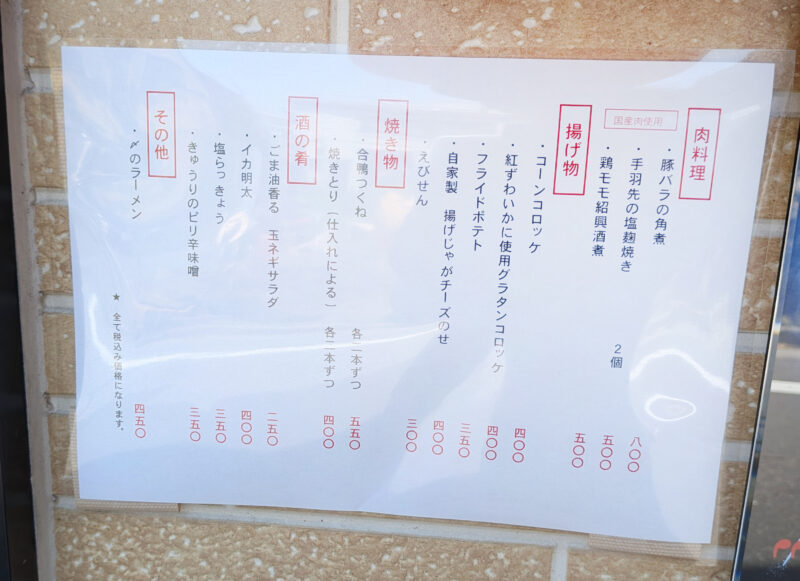 肉料理
国産肉使用
・豚バラの角煮 八〇〇
・手羽先の塩麹焼き 2個 五〇〇
・鶏モモ紹興酒煮 五〇〇
揚げ物
・コーンコロッケ 四〇〇
・紅ずわいかに使用グラタンコロッケ 四〇〇
・フライドポテト 三五〇
・自家製 揚げじゃがチーズのせ 四〇〇
・えびせん 三〇〇
焼き物
・合鴨つくね 各二本ずつ 五五〇
・焼きとり(仕入れによる) 各二本ずつ 四〇〇
酒の肴
・ごま油香る 玉ネギサラダ 二五〇
・イカ明太 四〇〇
・塩らっきょう 三五〇
・きゅうりのピリ辛味噌 三五〇
その他
・〆のラーメン 四五〇
★ 全て税込み価格になります。